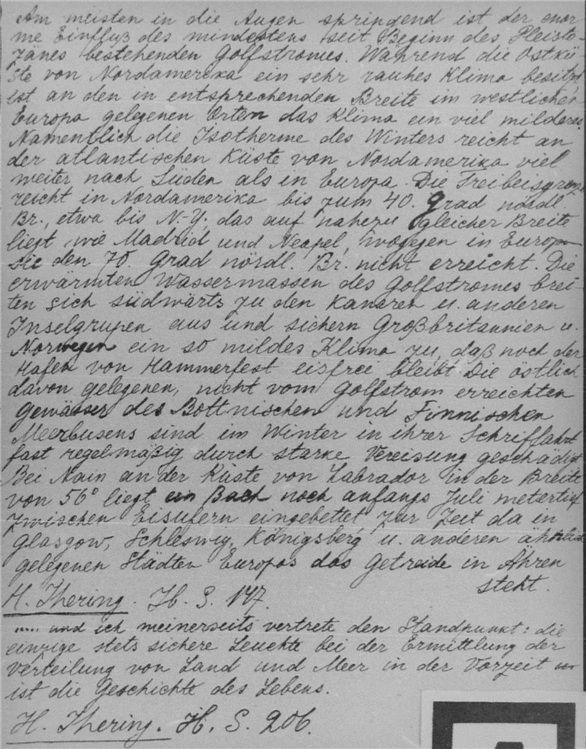 Am meisten in die Augen springend ist der enor-
me Einfluß des mindestens seit Beginn des Pleisto-
zänes bestehenden Golfstromes. Während die Ostkü-
ste von Nordamerika ein sehr rauhes Klima besitzt
ist an den in entsprechenden Breite im westlichen
Europa gelegenen Orten das Klima ein viel milderes
Namentlich die Isotherme des Winters reicht an
der atlantischen Küste von Nordamerika viel
weiter nach Süden als in Europa. Die Treibeisgren
reicht in Nordamerika bis zum 40. Grad nördl.
Br., etwa bis N-Y, das auf nahezu gleicher Breite
liegt wie Madrid und Neapel, wogegen in Europa
sie den 70. Grad nördl. Br. nicht erreicht. Die
erwärmten Wassermassen des Golfstromes brei-
ten sich südwärts zu den Kanaren u. anderen
Inselgrupen aus und sichern Großbritannien u.
Norwegen ein so mildes Klima zu, daß noch der
Hafen von Hammerfest eisfrei bleibt Die östlich
davon gelegenen, nicht vom Golfstrom erreichten
Gewässer des Bottnischen und Finnischen
Meerbusens sind im Winter in ihrer Schiffahrt
fast regelmäßig durch starke Vereisung geschädigt
Bei Nain an der Küste von Labrador in der Breite
von 56° liegt ein Bach noch anfangs Juli metertief
zwischen Eisufern eingebettet zur Zeit da in
Glasgow, Schleswig, Königsberg u. anderen ähnlich
gelegenen Städten Europas das Getreide in Ähren
steht.
H. Ihering. H. S. 147.
..... und ich meinerseits vertrete den Standpunkt: die
einzige stets sichere Leuchte bei der Ermittlung der
Verteilung von Land und Meer in der Vorzeit
ist die Geschichte des Lebens.
H. Ihering. H. S. 206.